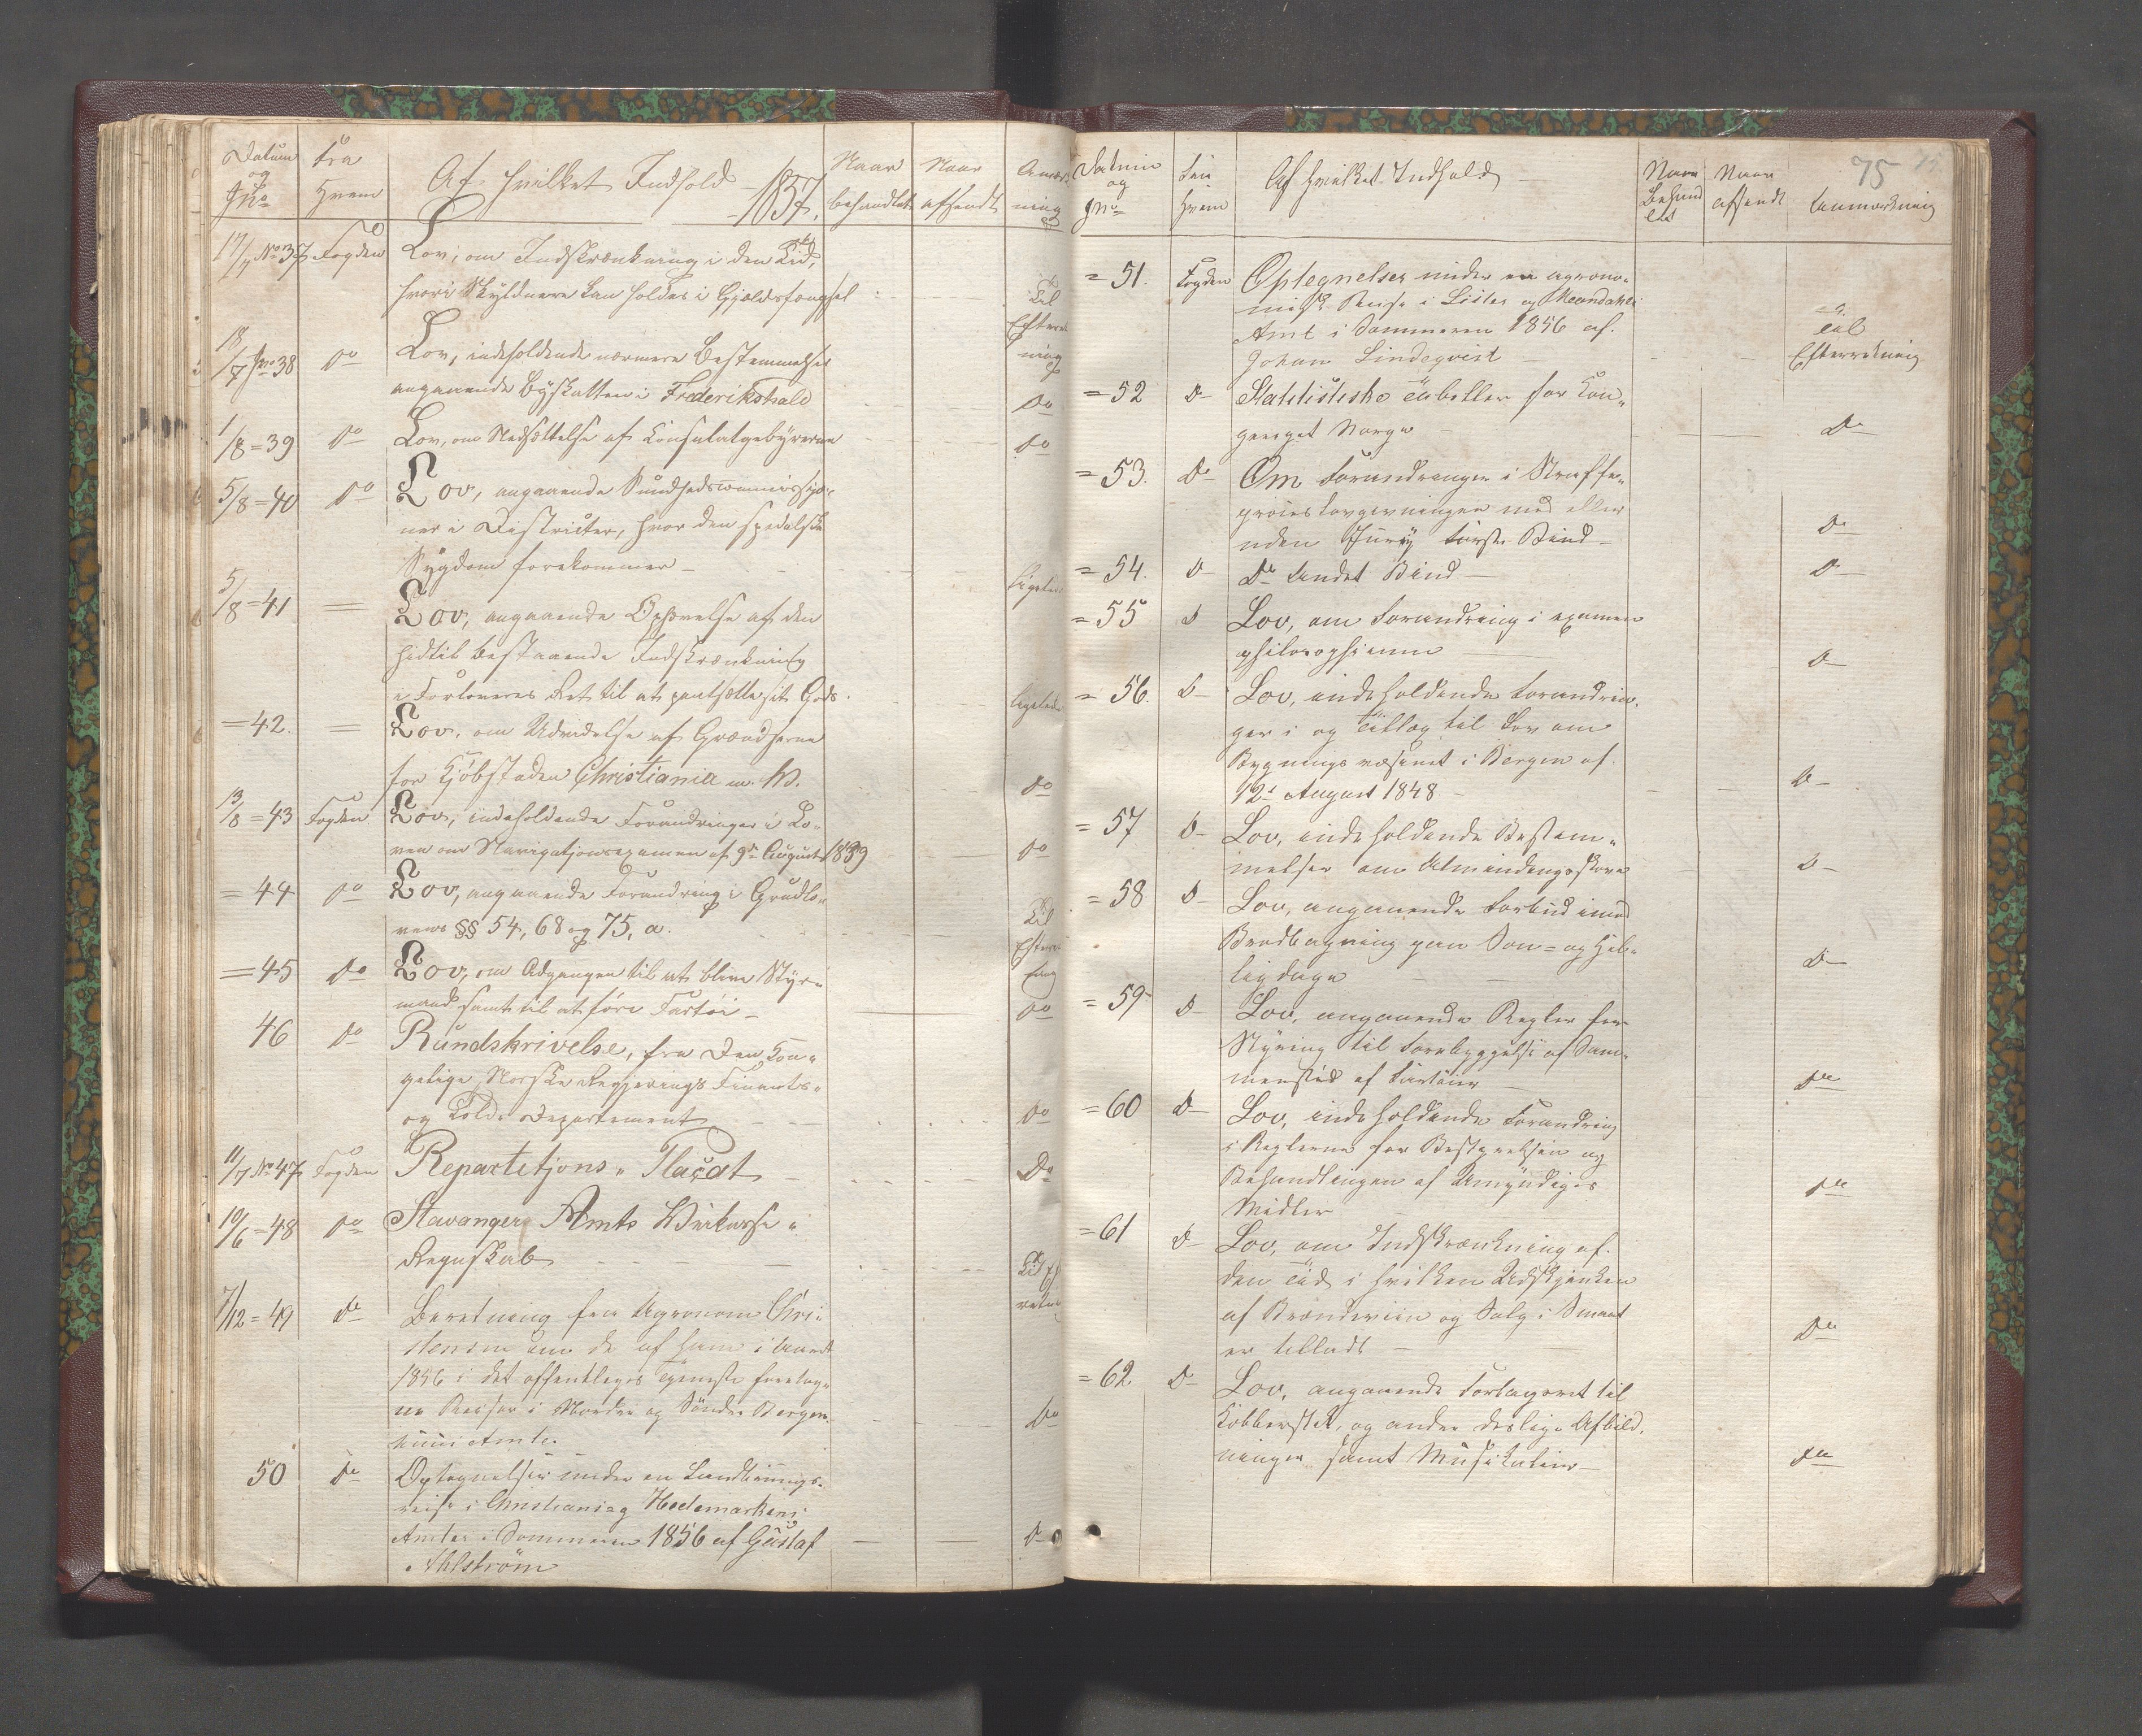 Datum og Jno | Fra Hvem | Af hvilket Indhold 1857. | Naar behandlet | Naar afsendt | Anmærkning
17/7 No 37 Fogden Lov, om Indskrænkning i den Tid,
hvori Skyldnere kan holdes i Gjældsfængsel
Til
Efterretning
18/7 Jno 38 Do Lov, indeholdende nærmere Bestemmelser
angaaende Byskatten i Frederikshald Do
1/8 = 39 Do Lov, om Nedsættelse af Consulatgebyrerne Do
5/8 = 40 Do Lov, angaaende Sundhedscommissjo-
ner i Districter, hvor den spedalske
Sygdom forekommer - Ligeledes
5/8 = 41 = Lov, angaaende Ophævelse af den
hidtil bestaaende Indskrænkning
i Forloveres Ret til at pantsætte sit Gods. Ligeledes
= 42. = Lov, om Udvidelse af Grændserne
for Kjøbstaden Christiania m. V. Do
13/8 = 43 Fogden Lov, indeholdende Forandringer i Lo-
ven om Navigationsexamen af 9de August 1839 Do
= 44 Do Lov, angaaende Forandring i Grundlo-
vens §§ 54, 68 og 75, a. Til
= 45 Do Lov, om Adgangen til at blive Styr-
mand samt til at føre Fartøi - Do
46 Do Rundskrivelse, fra Den Kon-
gelige Norske Regjerings Finants-
og Told-Departement Do
11/7 No 47 Fogden Repartitjons-Placat Do
10/6 = 48 Do Stavanger Amts Veikasse-
Regnskab Til
7/12 = 49 Do Beretning fra Agronom Chri-
stensen om de af ham i Aaret
1856 i det offentliges Tjeneste foretag-
ne Reiser i Nordre og Søndre Bergen-
huus Amter. Do
50 Do Optegnelser under en Landbrugs-
reise i Christians og Hedemarkens
Amter i Sommeren 1856 af Gustaf
Ahlström D
75
Datum og Jno | Fra Hvem | Af hvilket Indhold | Naar Behandlet | Naar afsendt | Anmærkning
= 51. Fogden Optegnelser under en agrono-
misk Reise i Lister og Mandahls
Amt i Sommeren 1856 af
Johan Lindeqvist - Til
Efterretning
= 52 D- Statistiske Tabeller for Kon-
geriget Norge - D-
= 53. D- Om Forandringer i Straffe-
proceslovgivningen med eller
uden Jury første Bind - D-
= 54. D- Do Andet Bind - D-
= 55 D Lov, om Forandring i examen
philosophicum D-
= 56. D- Lov, indeholdende Forandrin-
ger i og Tillæg til Lov om
Bygningsvæsenet i Bergen af
12te August 1848 - D-
= 57 D- Lov, indeholdende Bestem-
melser om Almindingsskove D-
= 58 D- Lov, angaaende Forbud imod
Brødbagning paa Søn- og Hel-
ligdage D-
= 59 D- Lov, angaaende Regler for
Styring til Forebyggelse af Sam-
menstød af Fartøier Do
= 60 D- Lov, indeholdende Forandring
i Reglerne for Bestyrelsen og
Behandlingen af Umyndiges
Midler Do
= 61 D- Lov, om Indskrænkning af
den Tid i hvilken Udskjænken
af Brændeviin og Salg i Smaat
er tilladt - Do
= 62 D- Lov, angaaende Forlagsret til
Kobberstik, og andre deslige Afbild-
ninger samt Musikalier - Do